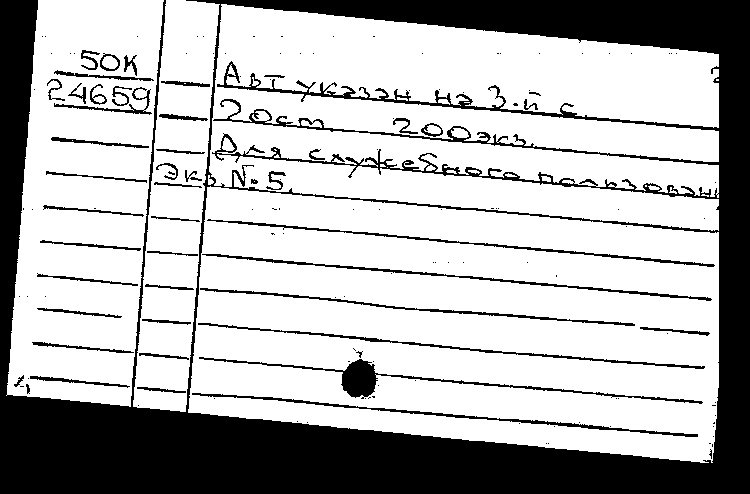 50К
24659
Авт указан на 3-й с.
20 см. 200 экз.
Для служебного пользован
Экз. № 5.